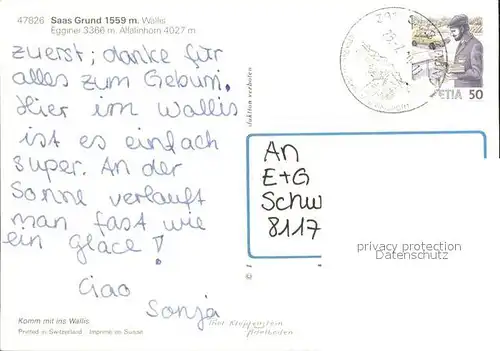 47826 Saas Grund 1559 m. Wallis
Egginer 3366 m. Allalinhorn 4027 m
zuerst; danke für
alles zum Geburri.
Hier im Wallis
ist es einfach
super. An der
Sonne verlauft
man fast wie
ein glace!
Ciao
Sonja
Komm mit ins Wallis
Printed in Switzerland Imprimé en Suisse
duktion verboten
HELVETIA 50
An
E+G
Schw
8117
privacy protection
Datenschutz